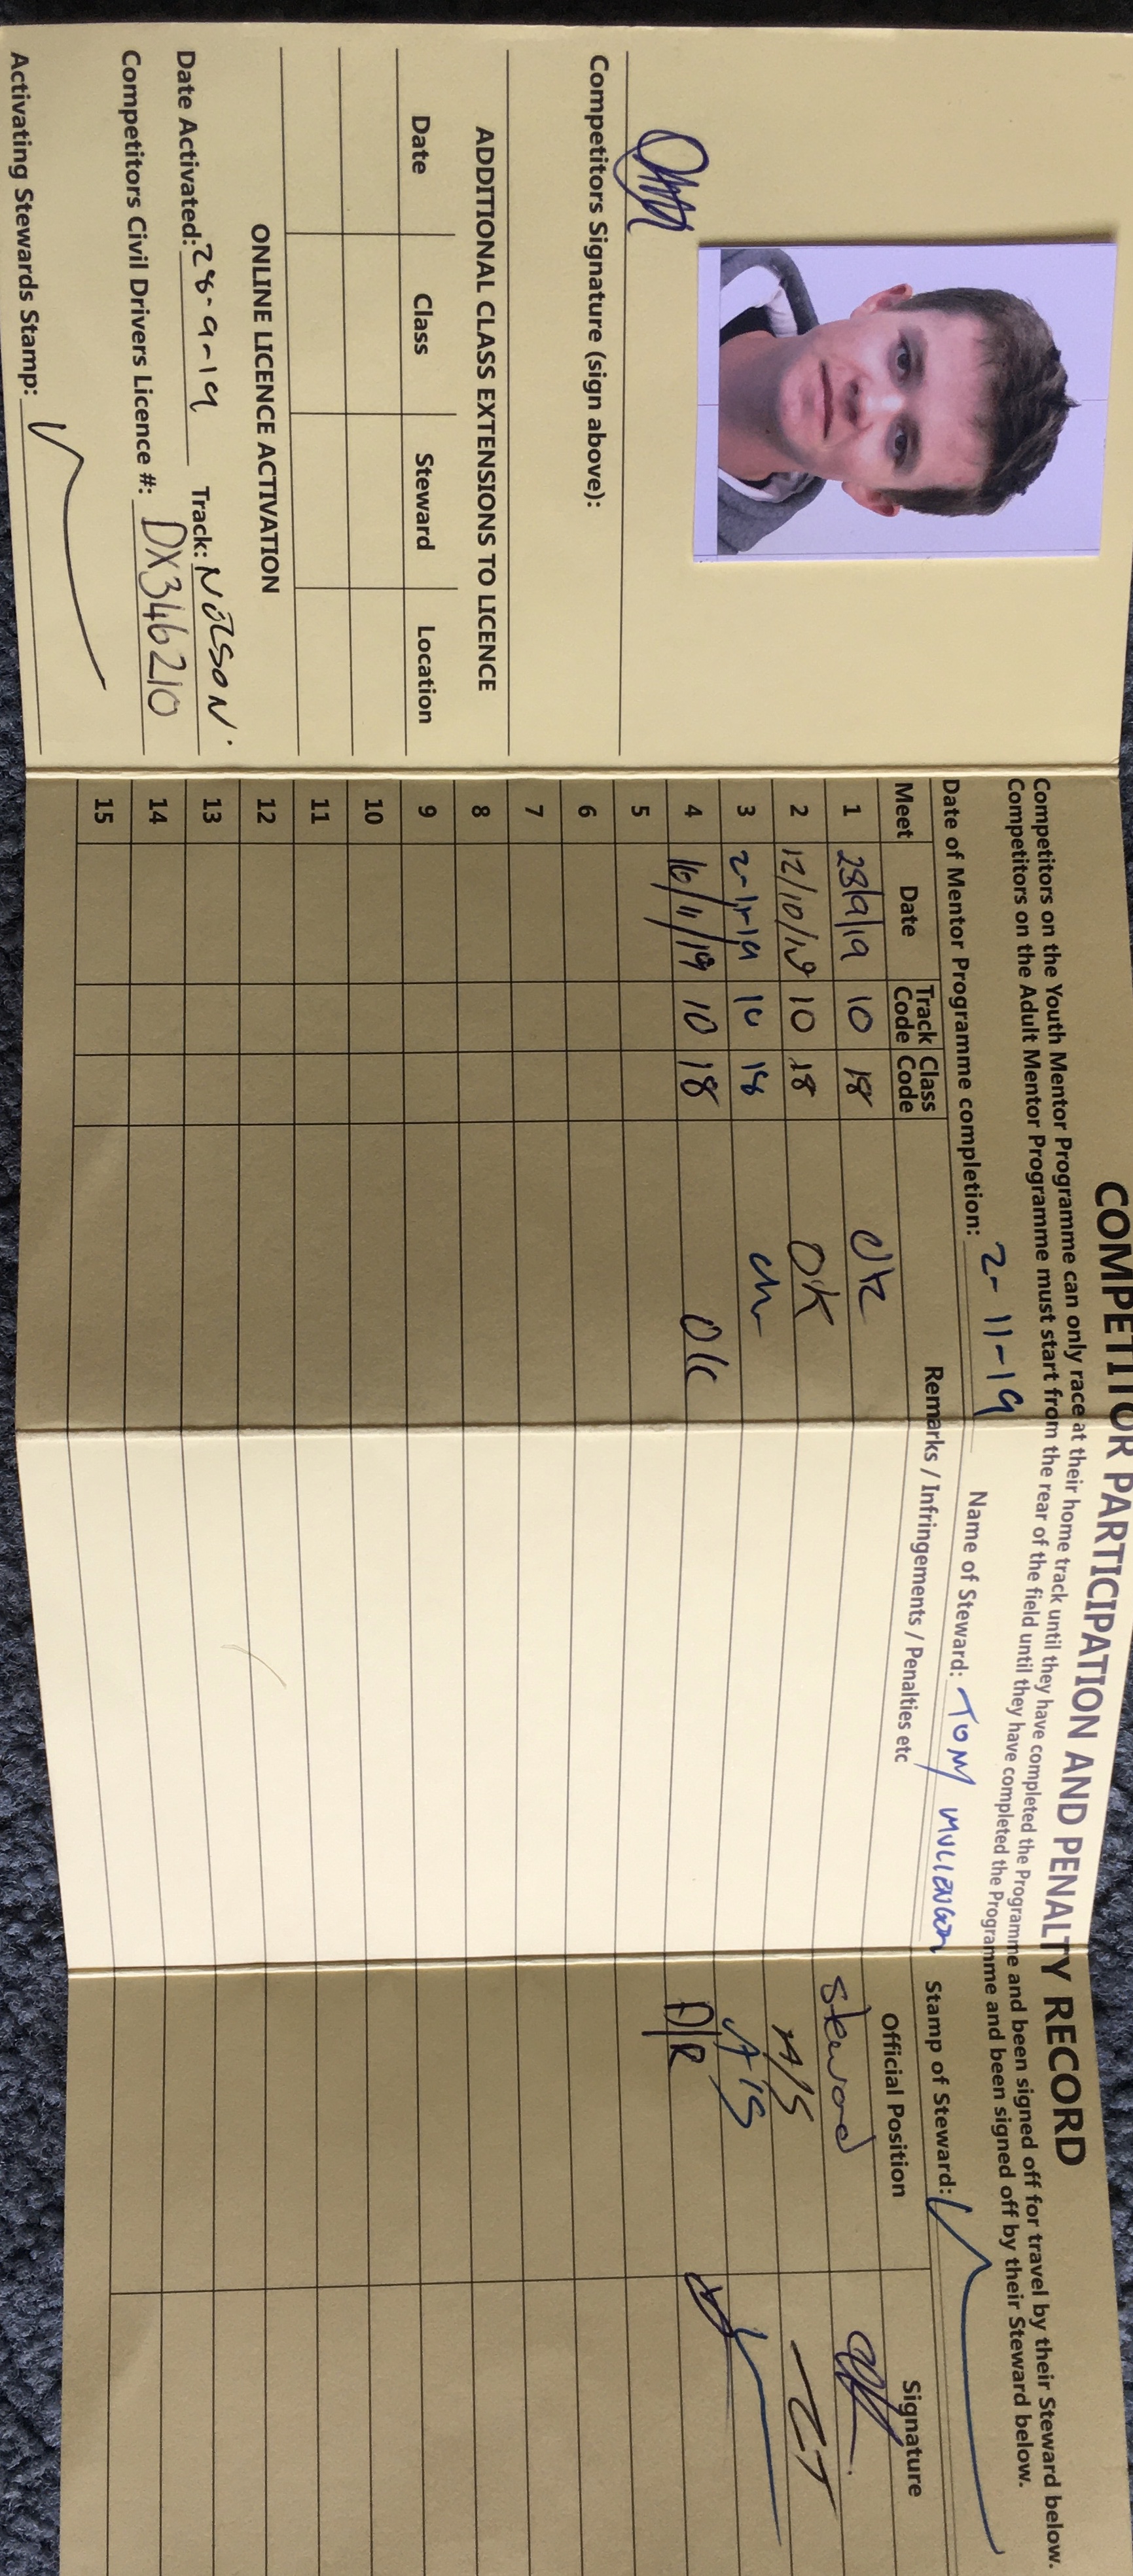 Competitors Signature (sign above):
ADDITIONAL CLASS EXTENSIONS TO LICENCE
Date Class Steward Location
ONLINE LICENCE ACTIVATION
Date Activated: 28-9-19 Track: NELSON.
Competitors Civil Drivers Licence #: DX346210
Activating Stewards Stamp:
COMPETITOR PARTICIPATION AND PENALTY RECORD
Competitors on the Youth Mentor Programme can only race at their home track until they have completed the Programme and been signed off for travel by their Steward below.
Competitors on the Adult Mentor Programme must start from the rear of the field until they have completed the Programme and been signed off by their Steward below.
Date of Mentor Programme completion: 2-11-19 Name of Steward: TOM Stamp of Steward:
Meet Date Track Code Class Code Remarks / Infringements / Penalties etc Official Position Signature
1 28/9/19 10 18 OK Steward
2 12/10/19 10 18 OK A/S
3 2-11-19 10 18 A/S
4 16/11/19 10 18 OK
5
6
7
8
9
10
11
12
13
14
15